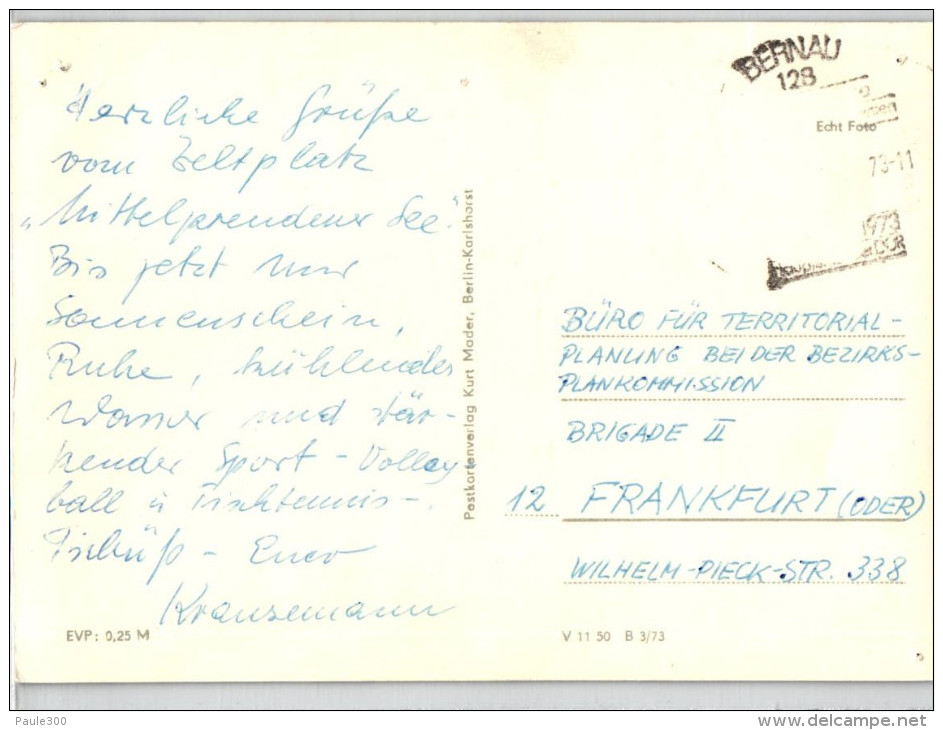 Herzliche Grüße
vom Zeltplatz
„Mittelprendener See“.
Bis jetzt nur
Sonnenschein,
Ruhe, kühlendes
Wasser und stär-
kender Sport - Volley
ball u Tischtennis-.
Tschüß - Euer
Krausemann
EVP: 0,25 M
Postkartenverlag Kurt Mader, Berlin-Karlshorst
BERNAU
128
Echt Foto
73-11
1973
DDR
BÜRO FÜR TERRITORIAL-
PLANUNG BEI DER BEZIRKS-
PLANKOMMISSION
BRIGADE II
12 FRANKFURT (ODER)
WILHELM-PIECK-STR. 338
V 11 50 B 3/73
Paule300
delcampe.net